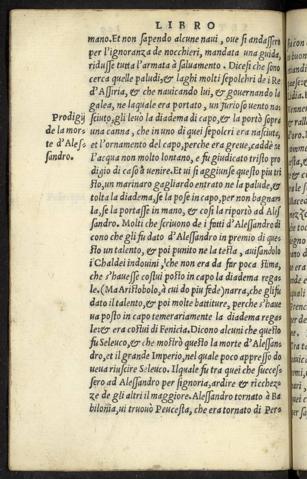 LIBRO
mano. Et non sapendo alcune naui, oue si andassero
per l'ignoranza de nocchieri, mandata una guida,
ridusse tutta l'armata à saluamento. Dicesi che sono
cerca quelle paludi, & laghi molti sepolchri de i Re
d'Assiria, & che nauicando lui, & gouernando la
galea, ne laquale era portato, un furioso uento na=
Prodigij
de la mor=
te d'Ales=
sandro.
sciuto, gli leuò la diadema di capo, & la portò sopra
una canna, che in uno di quei sepolcri era nasciuta,
et l'ornamento del capo, perche era greue, cadde ne
l'acqua non molto lontano, e fu giudicato tristo pro
digio di caso à uenire. Et ui si aggiunse questo piu tri
sto, un marinaro gagliardo entrato ne la palude, &
tolta la diadema, se la pose in capo, per non bagnar
la, se la portasse in mano, & cosi la riportò ad Ales
sandro. Molti che scriuono de i fatti d'Alessandro di
cono che gli fu dato d'Alessandro in premio di que=
sto un talento, & poi punito ne la testa, auisandolo
i Chaldei indouini, che non era da far poca stima,
che s'hauesse costui posto in capo la diadema rega=
le. (Ma Aristobolo, à cui do piu fede) narra, che gli fu
dato il talento, & poi molte battiture, perche s'haue
ua posto in capo temerariamente la diadema rega=
le: & era costui di Fenicia. Dicono alcuni che questo
fu Seleuco, & che mostrò questo la morte d'Alessan=
dro, et il grande Imperio, nel quale poco appresso do
ueua riuscire Seleuco. Ilquale fu tra quei che succes=
sero ad Alessandro per signoria, ardire & ricchez=
ze de gli altri il maggiore. Alessandro tornato à Ba
bilonia, ui truouò Peucesta, che era tornato di Pers